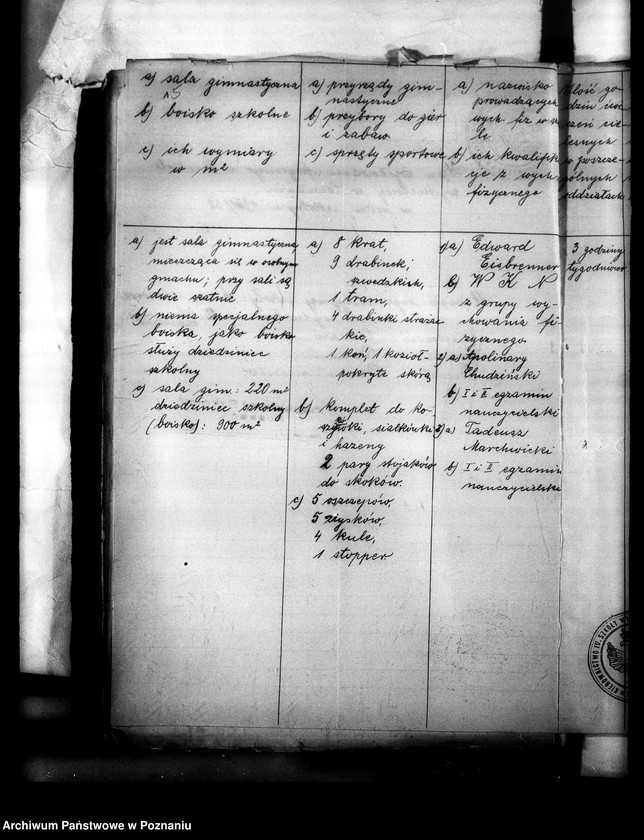 a) sala gimnastyczna
b) boisko szkolne
c) ich wymiary
w m²
a) przyrządy gim-
nastyczne
b) przybory do gier
i zabaw
c) sprzęty sportowe
a) nazwisko
prowadzących
wych. fiz w sz
le
b) ich kwalifik
cje z wych
fizycznego
Ilość go-
dzin
w poszcze-
gólnych
oddziałach
a) jest sala gimnastyczna
mieszcząca się w osobnym
gmachu; przy sali są
dwie szatnie
b) niema specjalnego
boiska, jako boisko
służy dziedziniec
szkolny
c) sala gim.: 220 m²
dziedziniec szkolny
(boisko): 900 m²
a) 8 krat,
9 drabinek;
szwedzkich,
1 tram,
4 drabinki strażac
kie,
1 koń, 1 kozioł-
pokryte skórą
b) komplet do ko-
szykówki, siatkówki
i hazeny
2 pary stojaków
do skoków.
c) 5 oszczepów,
5 dysków,
4 kule,
1 stopper.
1) a) Edward
Eisbrenner
b) W K N
z grupy wy-
chowania fi-
zycznego
2) a) Apolinary
Chudziński
b) I i II egzamin
nauczycielski
3) a) Tadeusz
Marchwicki
b) I i II egzamin
nauczycielski
3 godziny
tygodniowo
KIEROWNICTWO IV. SZKOŁY
Archiwum Państwowe w Poznaniu